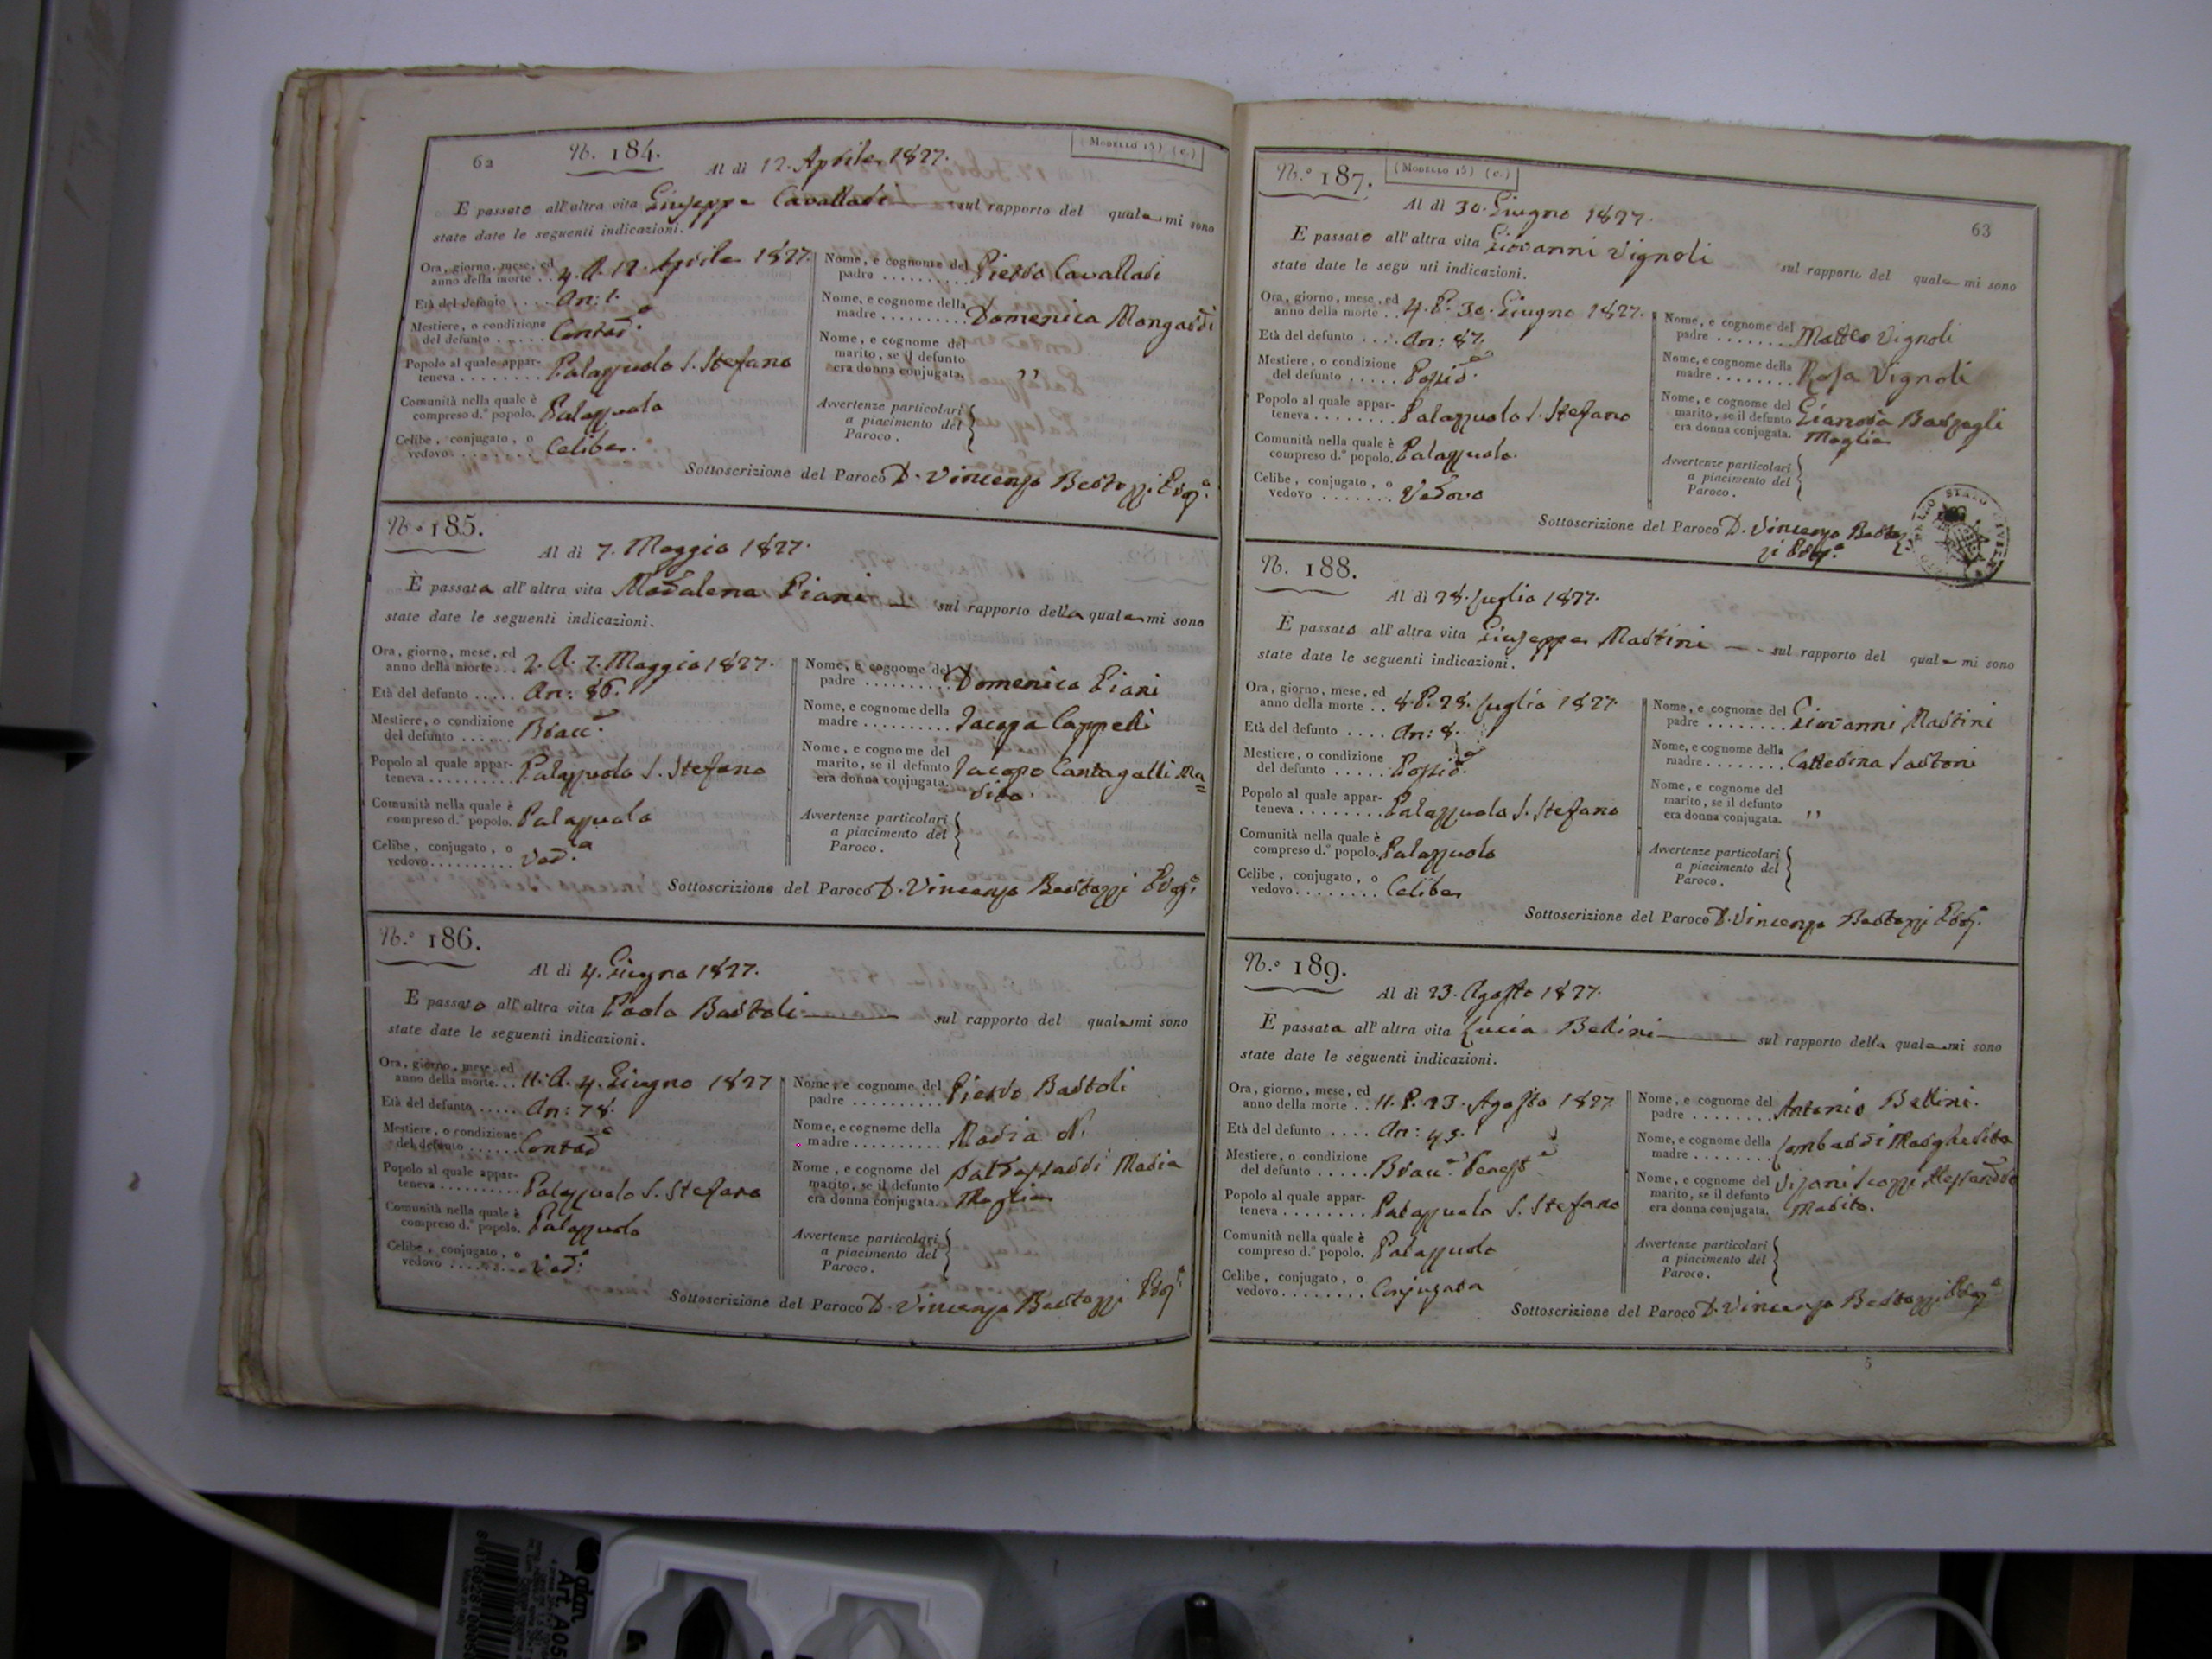 62
N. 184.
(Modello 15) (c.)
Al dì 12. Aprile 1827.
È passato all'altra vita Giuseppe Cavallari sul rapporto del quale mi sono
state date le seguenti indicazioni.
Ora, giorno, mese, ed
anno della morte .. 4. A. 12. Aprile 1827.
Età del defunto .... An: 1.
Mestiere, o condizione
del defunto ..... Contad.e
Popolo al quale appar-
teneva ........ Palazzuolo S. Stefano
Comunità nella quale è
compreso d.° popolo. Palazzuolo
Celibe, conjugato, o
vedovo ....... Celibe.
Nome, e cognome del
padre .......... Pietro Cavallari
Nome, e cognome della
madre .......... Domenica Mongardi
Nome, e cognome del
marito, se il defunto
era donna conjugata. "
Avvertenze particolari
a piacimento del
Paroco.
Sottoscrizione del Paroco D. Vincenzo Bertozzi
N.° 185.
Al dì 7. Maggio 1827.
È passata all'altra vita Madalena Piani sul rapporto della quale mi sono
state date le seguenti indicazioni.
Ora, giorno, mese, ed
anno della morte... 2. A. 7. Maggio 1827.
Età del defunto ..... An: 86.
Mestiere, o condizione
del defunto ...... Bracc.e
Popolo al quale appar-
teneva ......... Palazzuolo S. Stefano
Comunità nella quale è
compreso d.° popolo. Palazzuolo
Celibe, conjugato, o
vedovo.......... Ved.a
Nome, e cognome del
padre .......... Domenico Piani
Nome, e cognome della
madre ......... Jacopa Cappelli
Nome, e cognome del
marito, se il defunto Jacopo Cantagalli Ma=
era donna conjugata. rito.
Avvertenze particolari
a piacimento del
Paroco.
Sottoscrizione del Paroco D. Vincenzo Bertozzi
N.° 186.
Al dì 4. Giugno 1827.
È passato all'altra vita Paolo Bartoli sul rapporto del quale mi sono
state date le seguenti indicazioni.
Ora, giorno, mese, ed
anno della morte... 11. A. 4. Giugno 1827
Età del defunto ..... An: 78.
Mestiere, o condizione
del defunto ...... Contad.e
Popolo al quale appar-
teneva .......... Palazzuolo S. Stefano
Comunità nella quale è
compreso d.° popolo. Palazzuolo
Celibe, conjugato, o
vedovo ......... Ved.o
Nome, e cognome del
padre .......... Pietro Bartoli
Nome, e cognome della
madre .......... Maria N.
Nome, e cognome del
marito, se il defunto Maria
era donna conjugata. Moglie
Avvertenze particolari
a piacimento del
Paroco.
Sottoscrizione del Paroco D. Vincenzo Bertozzi
N.° 187.
(Modello 15) (c.)
63
Al dì 30. Giugno 1827.
È passato all'altra vita Giovanni Vignoli sul rapporto del quale mi sono
state date le segu nti indicazioni.
Ora, giorno, mese, ed
anno della morte .. 4. P. 30. Giugno 1827.
Età del defunto .... An: 87.
Mestiere, o condizione
del defunto ..... Possid.e
Popolo al quale appar-
teneva ........ Palazzuolo S. Stefano
Comunità nella quale è
compreso d.° popolo. Palazzuolo.
Celibe, conjugato, o
vedovo ....... Vedovo
Nome, e cognome del
padre ........ Matteo Vignoli
Nome, e cognome della
madre ........ Rosa Vignoli
Nome, e cognome del
marito, se il defunto
era donna conjugata. Moglie
Avvertenze particolari
a piacimento del
Paroco.
Sottoscrizione del Paroco D. Vincenzo Bertoz=
zi
N. 188.
Al dì 28. Luglio 1827.
È passato all'altra vita Giuseppe Martini sul rapporto del quale mi sono
state date le seguenti indicazioni.
Ora, giorno, mese, ed
anno della morte .. 8. P. 28. Luglio 1827.
Età del defunto .... An: 8.
Mestiere, o condizione
del defunto ...... Possid.e
Popolo al quale appar-
teneva ........ Palazzuolo S. Stefano
Comunità nella quale è
compreso d.° popolo. Palazzuolo
Celibe, conjugato, o
vedovo........ Celibe
Nome, e cognome del
padre ........ Giovanni Martini
Nome, e cognome della
madre ........ Catterina Sartoni
Nome, e cognome del
marito, se il defunto
era donna conjugata. "
Avvertenze particolari
a piacimento del
Paroco.
Sottoscrizione del Paroco D. Vincenzo Bertozzi
N.° 189.
Al dì 23. Agosto 1827.
È passata all'altra vita Lucia Bellini sul rapporto della quale mi sono
state date le seguenti indicazioni.
Ora, giorno, mese, ed
anno della morte .. 11. P. 23. Agosto 1827
Età del defunto .... An: 45.
Mestiere, o condizione
del defunto ..... Bracc.e
Popolo al quale appar-
teneva ........ Palazzuolo S. Stefano
Comunità nella quale è
compreso d.° popolo. Palazzuolo
Celibe, conjugato, o
vedovo........ Conjugata
Nome, e cognome del
padre ........ Antonio Bellini.
Nome, e cognome della
madre ........ Lombardi Margherita
Nome, e cognome del
marito, se il defunto Alessandro
era donna conjugata. Marito.
Avvertenze particolari
a piacimento del
Paroco.
Sottoscrizione del Paroco D. Vincenzo Bertozzi
5
Art. A05